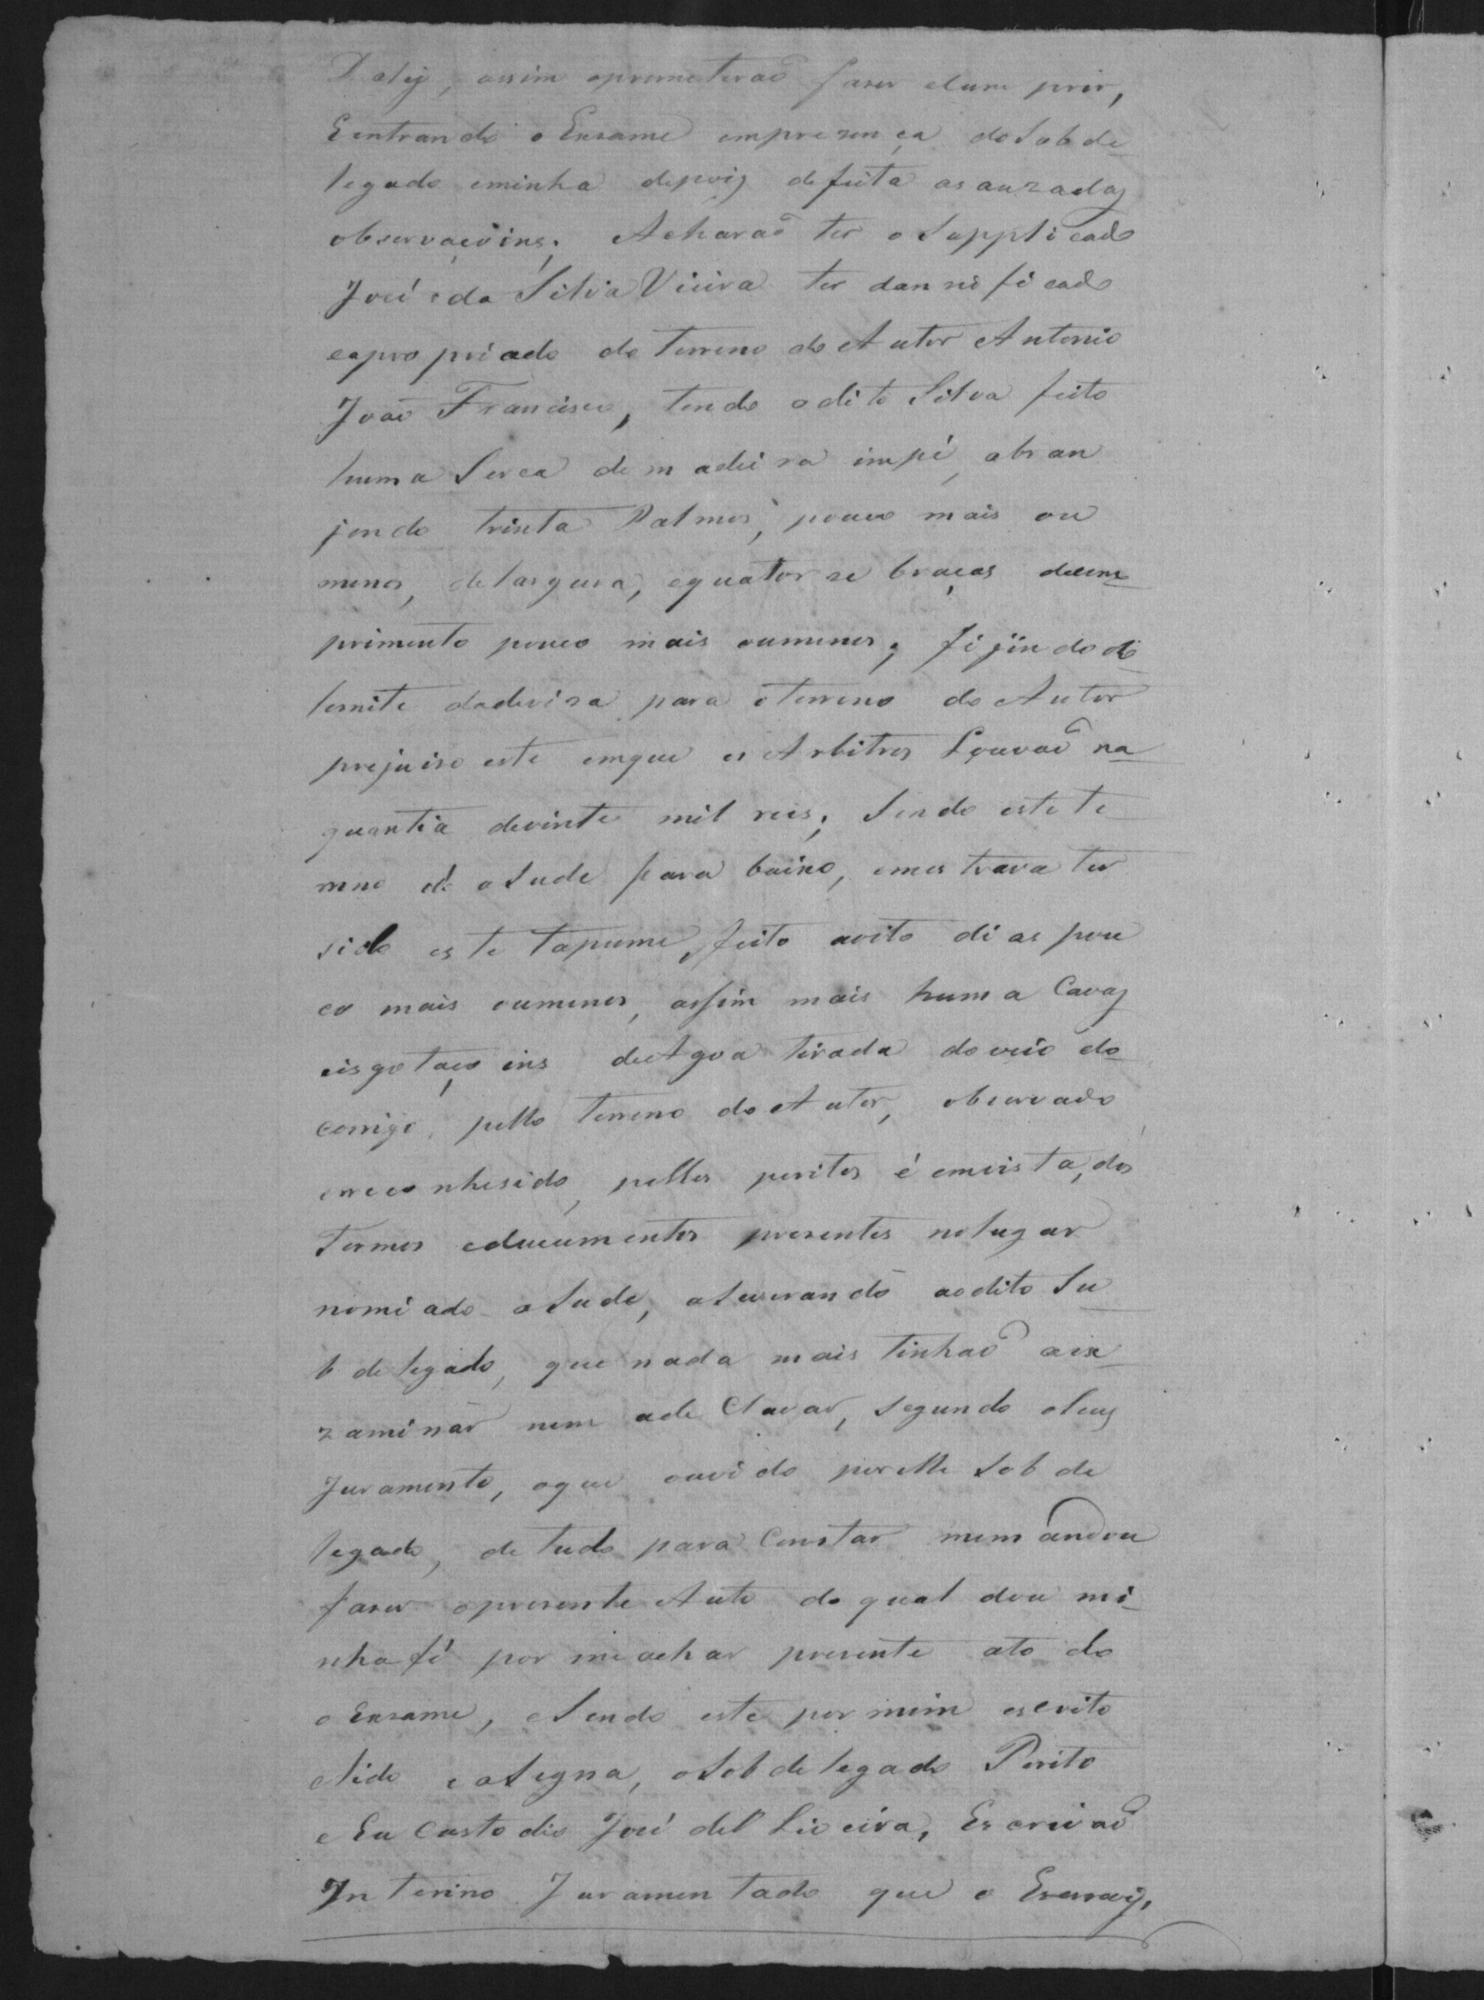 Daley, assim oprometeraõ faser elum prir,
Eentrando o Exsame empresença do Sobde-
legado eminha depoiz defeita asauzadaz
observaçoins; Acharaõ ter o Supplicado
José da Silva Vieira ter dannificado
eapropriado do terreno do Autor Antonio
Joaõ Francisco, tendo odito Silva feito
huma Serca demadeira impé, abran
jendo trinta Palmos, pouco mais ou
menos, delargura, equatorze braças decum-
primento pouco mais oumenos; fijindo do
lemite dadeviza para o terreno do Autor
prejuiso este emque os Arbitros Louvaõ na
quantia devinte mil reis; Sendo este te-
rreno do asude para baixo, emostrava ter
sido este tapume, feito aoito dias pou
co mais oumenos, assim mais huma Cavaz
eisgotaçoins deAgoa tirada do veio do
corrigo, pello terreno do Autor, observado
ereconhesido, pellos peritos é emvista, dos
termos edocumentos presentes nolugar
nomiado aSude, aSeverando aodito Su
bdelegado, que nada mais tinhaõ aex-
zaminar nem ade Clarar, segundo oSeuz
Juramento, oque ouvido porelle Sobde
legado, de tudo para Constar memandou
faser opresente Auto do qual dou mi-
nha fé por meachar presente ato do
o Exsame, eSendo este por mim escrito
eLido easigna, oSobdelegado Perito
e Eu Custodio José deOliveira, Escrivaõ
Interino Juramentado que o Escrevy,